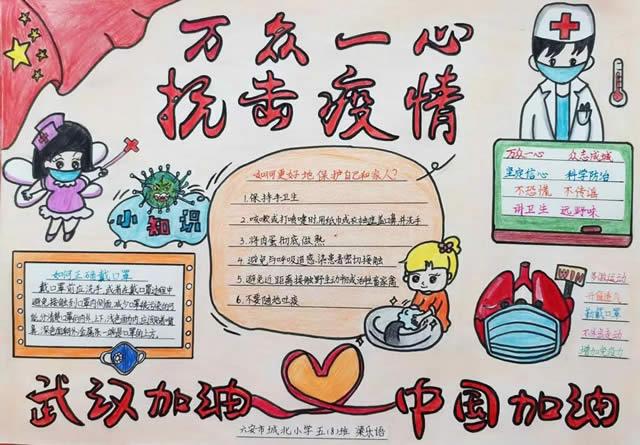 万众一心
抗击疫情
小知识
如何更好地保护自己和家人?
1.保持手卫生
2.咳嗽或打喷嚏时用纸巾或衣袖遮盖口鼻并洗手
3.将肉蛋彻底做熟
4.避免与呼吸道感染患者密切接触
5.避免近距离接触野生动物或活牲畜家禽
6.不要随地吐痰
万众一心 众志成城
坚定信心 科学防治
不恐慌 不传谣
讲卫生 远野味
如何正确戴口罩
戴口罩前应洗手,或者在戴口罩过程中
避免接触到口罩内侧面,减少口罩被污染的可
深色面朝外,金属条一端是口罩的上方。
WIN
多做运动
开窗通气
勤戴口罩
增加免疫力
武汉加油
中国加油
六安市城北小学五(8)班 梁乐语